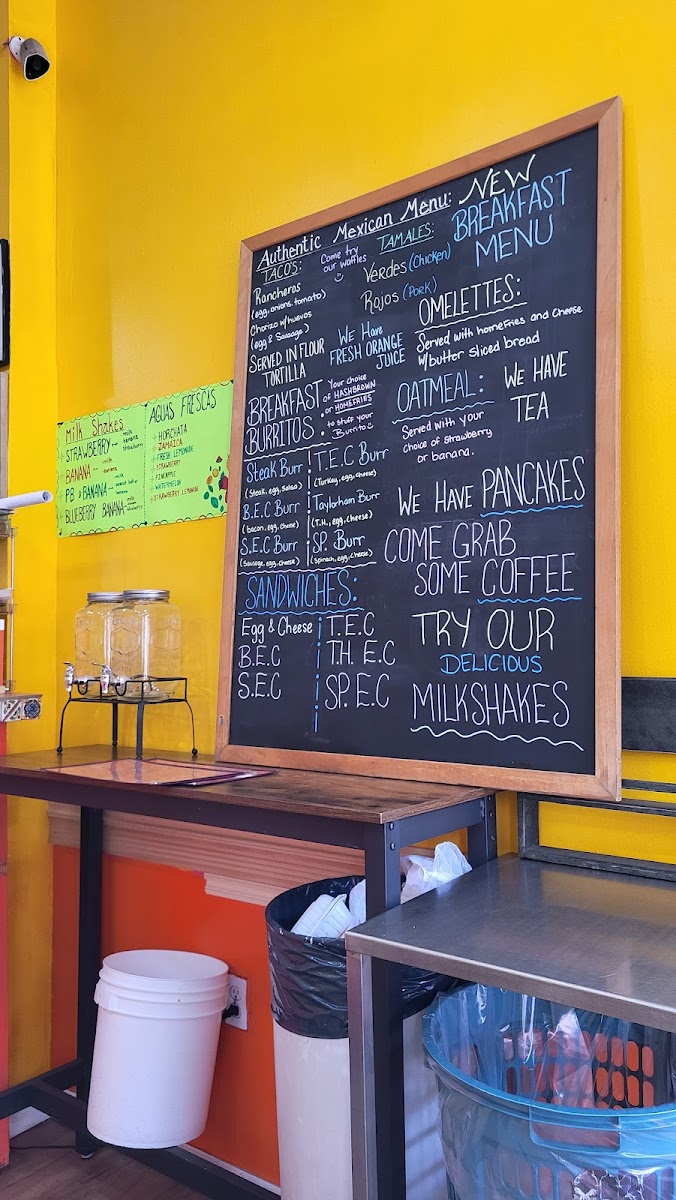 Authentic Mexican Menu:
TACO'S:
Rancheros
(egg, onions, tomato)
Chorizo w/huevos
(egg & Sausage)
SERVED IN FLOUR
TORTILLA
Come try
our waffles
TAMALES:
Verdes (Chicken)
Rojos (PORK)
WE HAVE
FRESH ORANGE
JUICE
NEW
BREAKFAST
MENU
OMELETTES:
Served with homeFries and Cheese
w/butter Sliced bread
BREAKFAST
BURRITOS:
Your choice
of HASHBROWN
or HOMEFRIES
to stuff your
Burrito
Steak Burr
(Steak, egg, Salsa)
B.E.C Burr
(bacon, egg, cheese)
S.E.C Burr
(Sausage, egg, cheese)
T.E.C Burr
(Turkey, egg, cheese)
Taylorham Burr
(T.H., egg, cheese)
SP. Burr
(Spinach, egg, cheese)
OATMEAL:
Served with your
choice of strawberry
or banana.
WE HAVE
TEA
WE HAVE PANCAKES
COME GRAB
SOME COFFEE
SANDWICHES:
Egg & Cheese
B.E.C
S.E.C
T.E.C
T.H. E.C
SP. E.C
TRY OUR
DELICIOUS
MILKSHAKES
Milk Shakes
STRAWBERRY
milk
banana
strawberry
BANANA
milk
banana
PB & BANANA
BLUEBERRY BANANA
AGUAS FRESCAS
HORCHATA
JAMAICA
FRESH LEMONADE
STRAWBERRY
PINEAPPLE
WATERMELON
STRAWBERRY LEMONADE